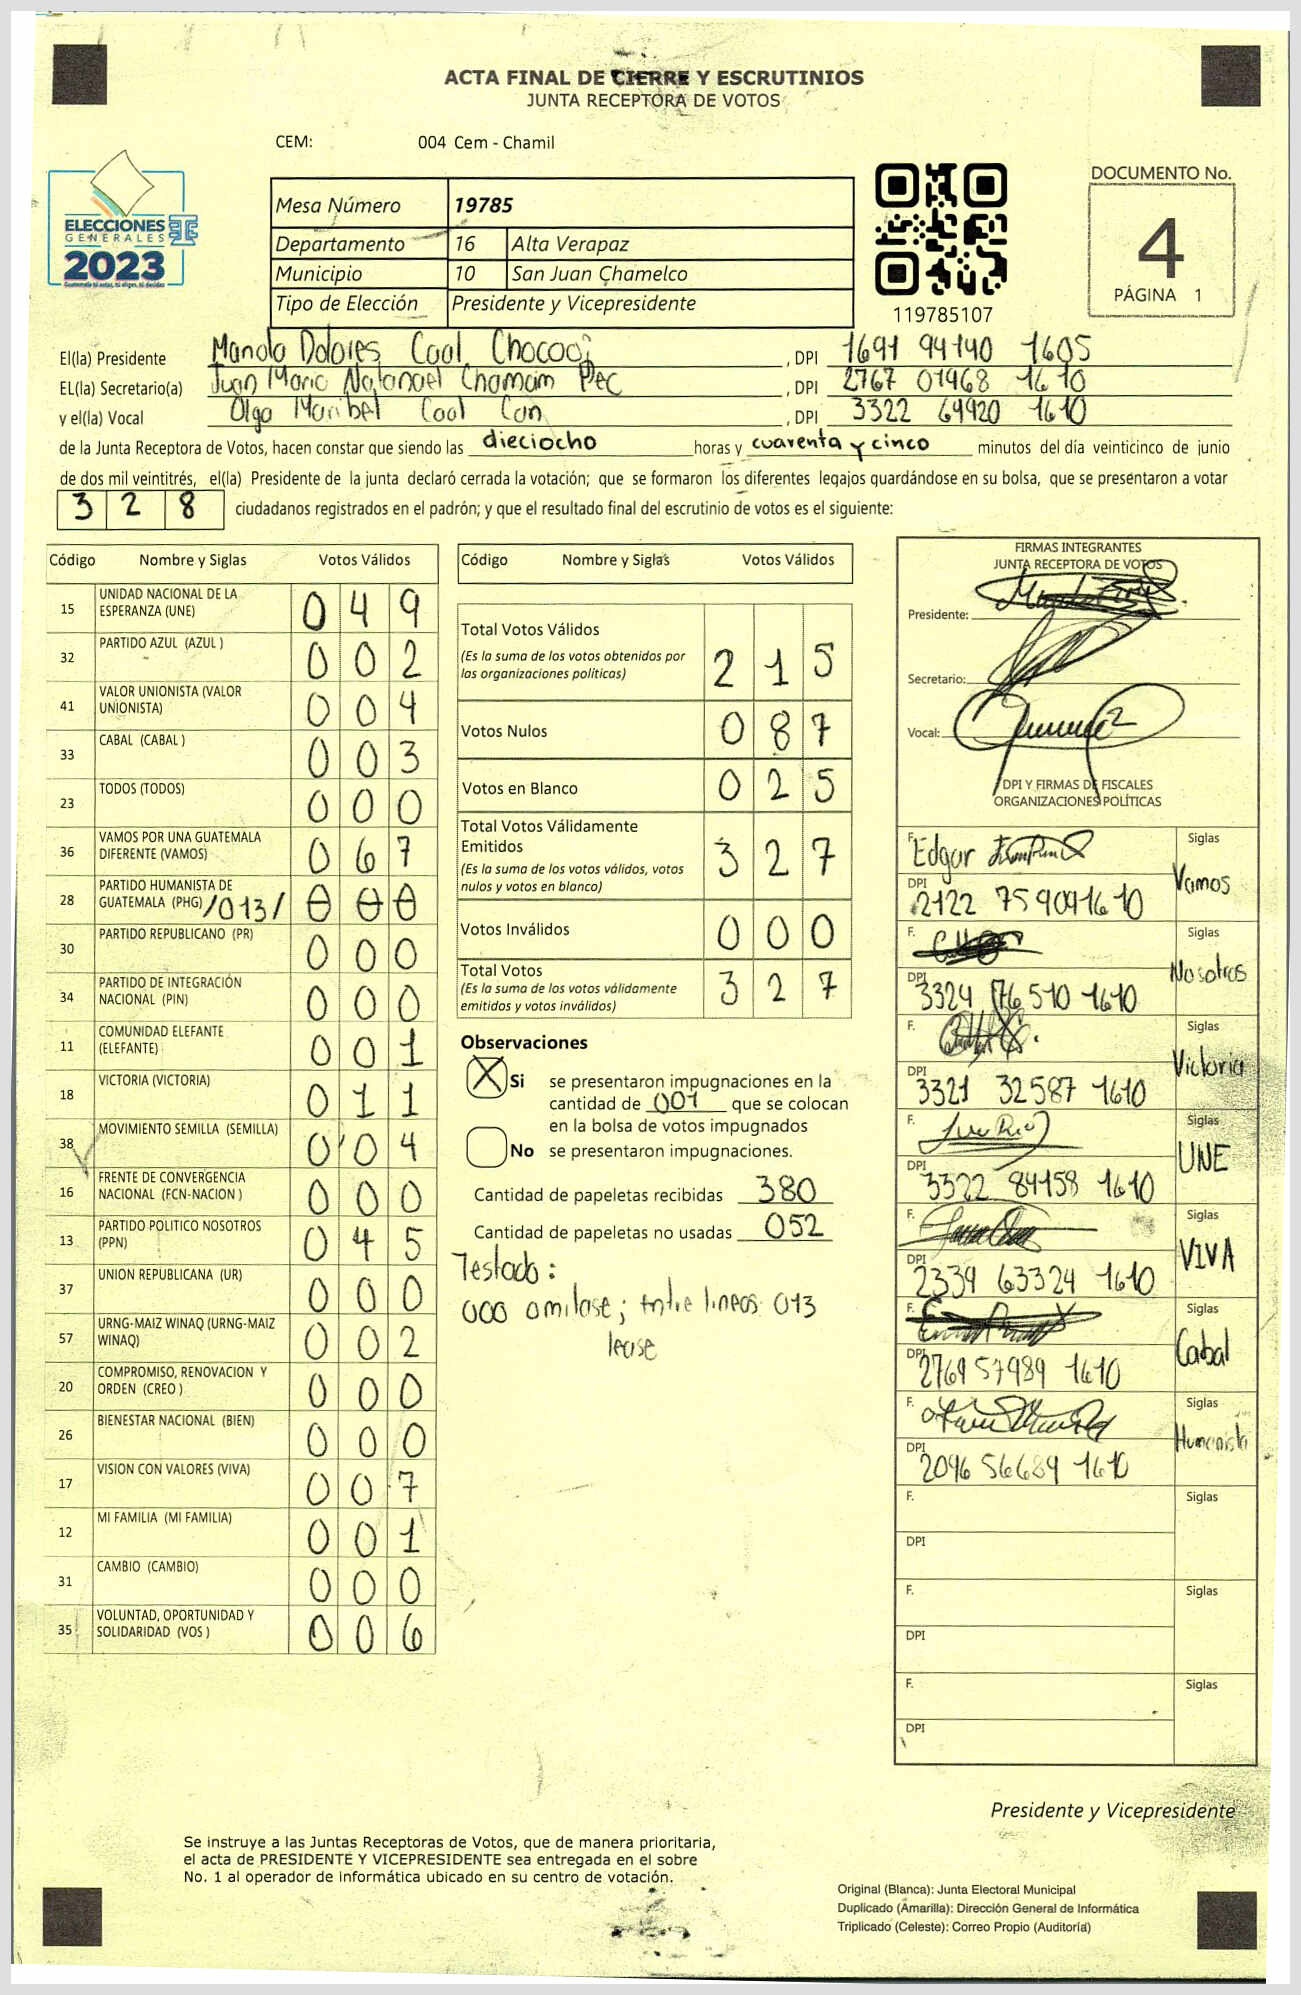 ACTA FINAL DE CIERRE Y ESCRUTINIOS
JUNTA RECEPTORA DE VOTOS
CEM: 004 Cem - Chamil
ELECCIONES
GENERALES
2023
Mesa Número 19785
Departamento 16 Alta Verapaz
Municipio 10 San Juan Chamelco
Tipo de Elección Presidente y Vicepresidente
119785107
DOCUMENTO No.
4
PÁGINA 1
El(la) Presidente Manolo Dolores Caal Chocooj , DPI 1691 94140 1605
EL(la) Secretario(a) Juan Mario Natanael Chamam Pec , DPI 2767 01968 1610
y el(la) Vocal Olga Maribel Caal Can , DPI 3322 64920 1610
de la Junta Receptora de Votos, hacen constar que siendo las dieciocho horas y cuarenta y cinco minutos del día veinticinco de junio
de dos mil veintitrés, el(la) Presidente de la junta declaró cerrada la votación; que se formaron los diferentes legajos guardándose en su bolsa, que se presentaron a votar
3 2 8 ciudadanos registrados en el padrón; y que el resultado final del escrutinio de votos es el siguiente:
Código Nombre y Siglas Votos Válidos
15 UNIDAD NACIONAL DE LA ESPERANZA (UNE) 0 4 9
32 PARTIDO AZUL (AZUL ) 0 0 2
41 VALOR UNIONISTA (VALOR UNIONISTA) 0 0 4
33 CABAL (CABAL ) 0 0 3
23 TODOS (TODOS) 0 0 0
36 VAMOS POR UNA GUATEMALA DIFERENTE (VAMOS) 0 6 7
28 PARTIDO HUMANISTA DE GUATEMALA (PHG) /013/ 0 0 0
30 PARTIDO REPUBLICANO (PR) 0 0 0
34 PARTIDO DE INTEGRACIÓN NACIONAL (PIN) 0 0 0
11 COMUNIDAD ELEFANTE (ELEFANTE) 0 0 1
18 VICTORIA (VICTORIA) 0 1 1
38 MOVIMIENTO SEMILLA (SEMILLA) 0 0 4
16 FRENTE DE CONVERGENCIA NACIONAL (FCN-NACION ) 0 0 0
13 PARTIDO POLITICO NOSOTROS (PPN) 0 4 5
37 UNION REPUBLICANA (UR) 0 0 0
57 URNG-MAIZ WINAQ (URNG-MAIZ WINAQ) 0 0 2
20 COMPROMISO, RENOVACION Y ORDEN (CREO ) 0 0 0
26 BIENESTAR NACIONAL (BIEN) 0 0 0
17 VISION CON VALORES (VIVA) 0 0 7
12 MI FAMILIA (MI FAMILIA) 0 0 1
31 CAMBIO (CAMBIO) 0 0 0
35 VOLUNTAD, OPORTUNIDAD Y SOLIDARIDAD (VOS ) 0 0 6
Código Nombre y Siglas Votos Válidos
Total Votos Válidos 2 1 5
(Es la suma de los votos obtenidos por
las organizaciones políticas)
Votos Nulos 0 8 7
Votos en Blanco 0 2 5
Total Votos Válidamente
Emitidos 3 2 7
(Es la suma de los votos válidos, votos
nulos y votos en blanco)
Votos Inválidos 0 0 0
Total Votos 3 2 7
(Es la suma de los votos válidamente
emitidos y votos inválidos)
Observaciones
X Si se presentaron impugnaciones en la
cantidad de 001 que se colocan
en la bolsa de votos impugnados
No se presentaron impugnaciones.
Cantidad de papeletas recibidas 380
Cantidad de papeletas no usadas 052
Testado:
000 omitase; entre lineas 013
lease
FIRMAS INTEGRANTES
JUNTA RECEPTORA DE VOTOS
Presidente:
Secretario:
Vocal:
DPI Y FIRMAS DE FISCALES
ORGANIZACIONES POLÍTICAS
F. Edgar Siglas
DPI 2122 75909 1610 Vamos
F. Siglas
DPI 3324 76510 1610 Nosotros
F. Siglas
DPI 3321 32587 1610 Victoria
F. Siglas
DPI 3322 84158 1610 UNE
F. Siglas
DPI 2339 63324 1610 VIVA
F. Siglas
DPI 2769 57989 1610 Cabal
F. Siglas
DPI 2096 56689 1610 Humanista
F. Siglas
DPI
F. Siglas
DPI
F. Siglas
DPI
Presidente y Vicepresidente
Se instruye a las Juntas Receptoras de Votos, que de manera prioritaria,
el acta de PRESIDENTE Y VICEPRESIDENTE sea entregada en el sobre
No. 1 al operador de informática ubicado en su centro de votación.
Original (Blanca): Junta Electoral Municipal
Duplicado (Amarilla): Dirección General de Informática
Triplicado (Celeste): Correo Propio (Auditoría)